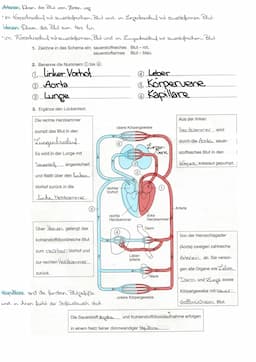 Arterien: führen das Blut vom Herzen weg
im Körperkreislauf mit sauerstoffreichem Blut und im Lungenkreislauf mit sauerstoffarmem Blut
Venen: führen das Blut zum Herz hin
im Körperkreislauf mit sauerstoffarmem Blut und im Lungenkreislauf mit sauerstoffreichem Blut
1. Zeichne in das Schema ein: sauerstoffreiches Blut - rot,
sauerstoffarmes Blut - blau.
2. Benenne die Nummern ① bis ⑥.
① linker Vorhof
④ Leber
② Aorta
⑤ Körpervene
③ Lunge
⑥ Kapillare
3. Ergänze den Lückentext.
obere Körpergewebe
Die rechte Herzkammer
pumpt das Blut in den
Lungenkreislauf.
Es wird in der Lunge mit
Sauerstoff angereichert
und fließt über den linken
Vorhof zurück in die
linke Herzkammer.
Aus der linken
Herzkammer wird
durch die Aorta sauer-
stoffreiches Blut in den
Körper gepumpt.
rechter
Vorhof
rechte
Herzkammer
linke
Herzkammer
Arterie
Über Venen gelangt das
kohlenstoffdioxidreiche Blut
zum rechten Vorhof und
zur rechten Herzkammer
zurück.
Von der Hauptschlagader
(Aorta) zweigen zahlreiche
Arterien ab. Sie versor-
gen alle Organe wie Leber,
Darm und Niere sowie
Körpergewebe mit sauer-
stoffreichem Blut.
Darm
Leber
untere Körpergewebe
Kapillare: sind die feinsten Blutgefäße
und in ihnen findet der Stoffaustausch statt
Die Sauerstoffabgabe und Kohlenstoffdioxidaufnahme erfolgen
in einem Netz feiner dünnwandiger Kapillaren.